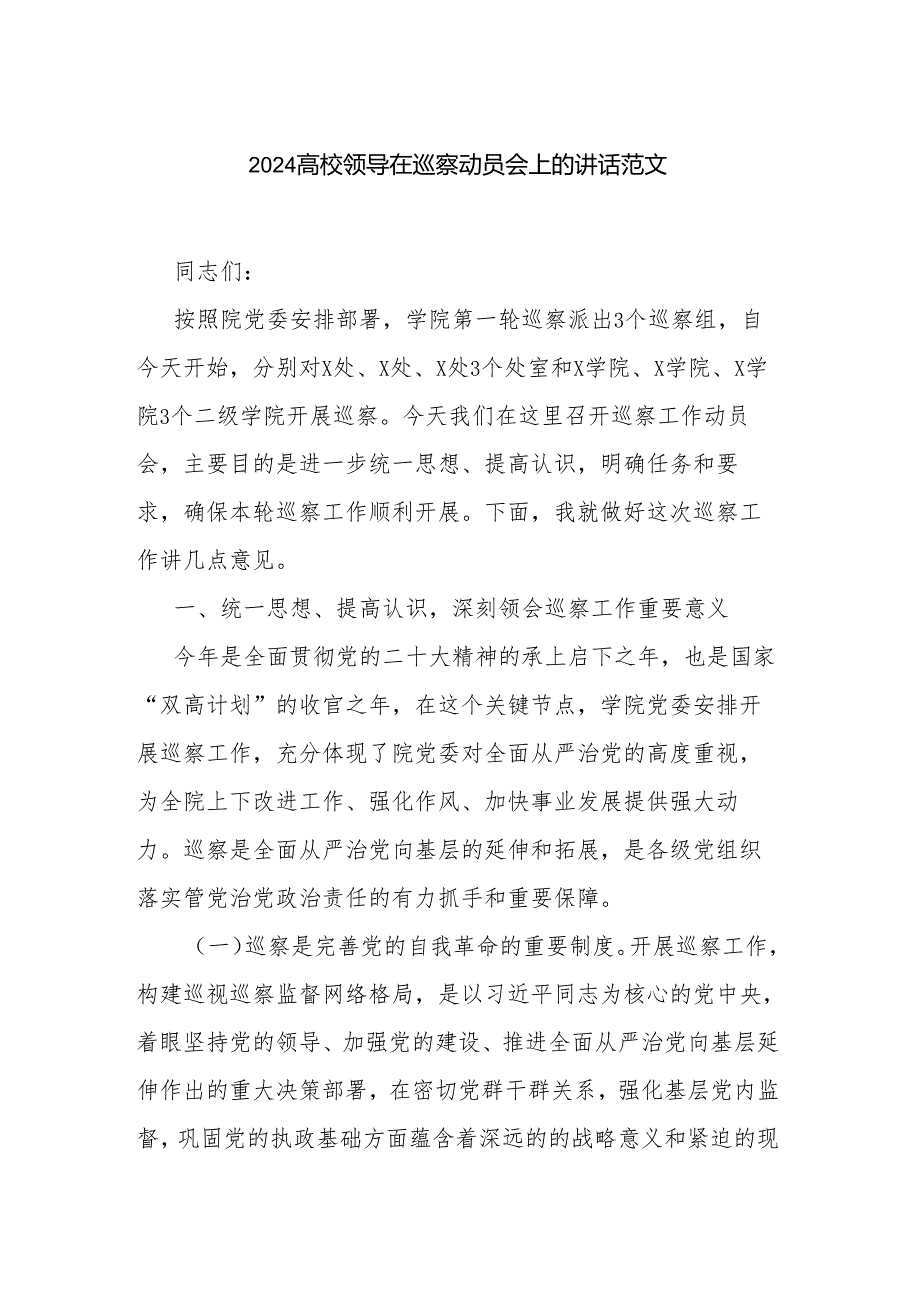 2024高校领导在巡察动员会上的讲话范文
同志们：
按照院党委安排部署，学院第一轮巡察派出3个巡察组，自
今天开始，分别对X处、X处、X处3个处室和X学院、X学院、X学
院3个二级学院开展巡察。今天我们在这里召开巡察工作动员
会，主要目的是进一步统一思想、提高认识，明确任务和要
求，确保本轮巡察工作顺利开展。下面，我就做好这次巡察工
作讲几点意见。
一、统一思想、提高认识，深刻领会巡察工作重要意义
今年是全面贯彻党的二十大精神的承上启下之年，也是国家
“双高计划”的收官之年，在这个关键节点，学院党委安排开
展巡察工作，充分体现了院党委对全面从严治党的高度重视，
为全院上下改进工作、强化作风、加快事业发展提供强大动
力。巡察是全面从严治党向基层的延伸和拓展，是各级党组织
落实管党治党政治责任的有力抓手和重要保障。
（一）巡察是完善党的自我革命的重要制度。开展巡察工作，
构建巡视巡察监督网络格局，是以习近平同志为核心的党中央，
着眼坚持党的领导、加强党的建设、推进全面从严治党向基层延
伸作出的重大决策部署，在密切党群干群关系，强化基层党内监
督，巩固党的执政基础方面蕴含着深远的的战略意义和紧迫的现